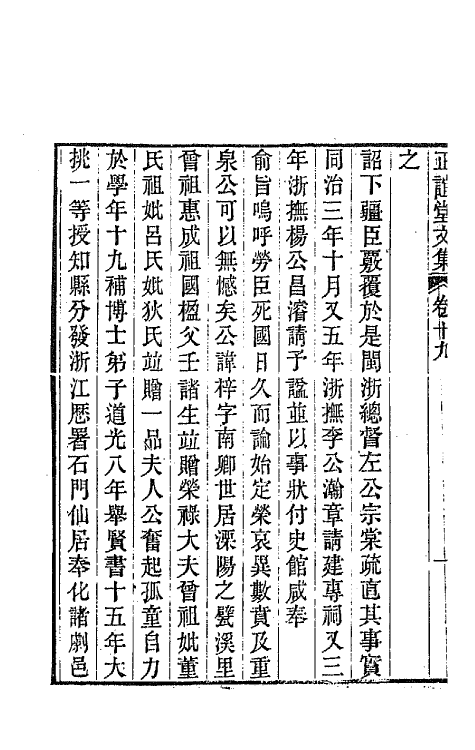 正誼堂文集 卷廿九 一
之
詔下疆臣覈覆於是閩浙總督左公宗棠疏直其事實
同治三年十月又五年浙撫李公瀚章請建專祠又三
年浙撫楊公昌濬請予諡並以事狀付史館咸奉
俞旨嗚呼勞臣死國日久而論始定榮哀異數賁及重
泉公可以無憾矣公諱梓字南卿世居溧陽之甓溪里
曾祖惠成祖國楹父壬諸生竝贈榮祿大夫曾祖妣董
氏祖妣呂氏妣狄氏竝贈一品夫人公奮起孤童自力
於學年十九補博士弟子道光八年舉賢書十五年大
挑一等授知縣分發浙江歷署石門仙居奉化諸劇邑